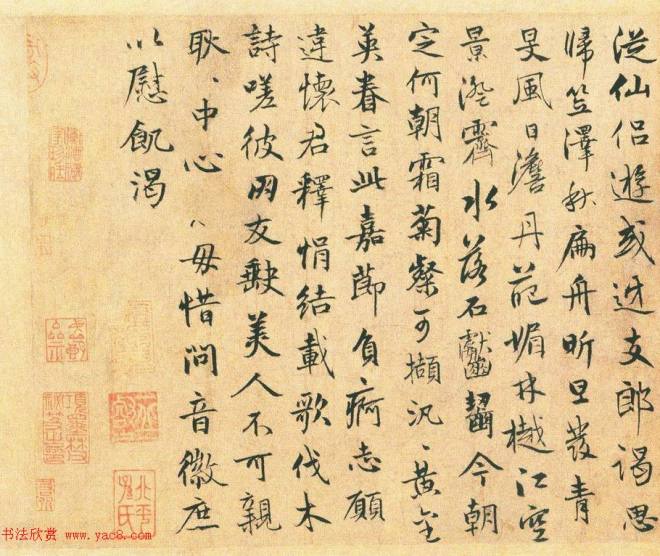 從仙侣遊或迓支郎謁思
歸笠澤秋扁舟昕旦發青
旻風日澹丹葩媚林樾江空
景澄霽水落石巘齶今朝
定何朝霜菊粲可擷汎〻黃金
英眷言此嘉節負痾志願
違懷君釋悁結載歌伐木
詩嗟彼网友缺美人不可親
耿〻中心〻毋惜問音徽庶
以慰飢渴
北平
孫氏
书法欣赏 www.yac8.com